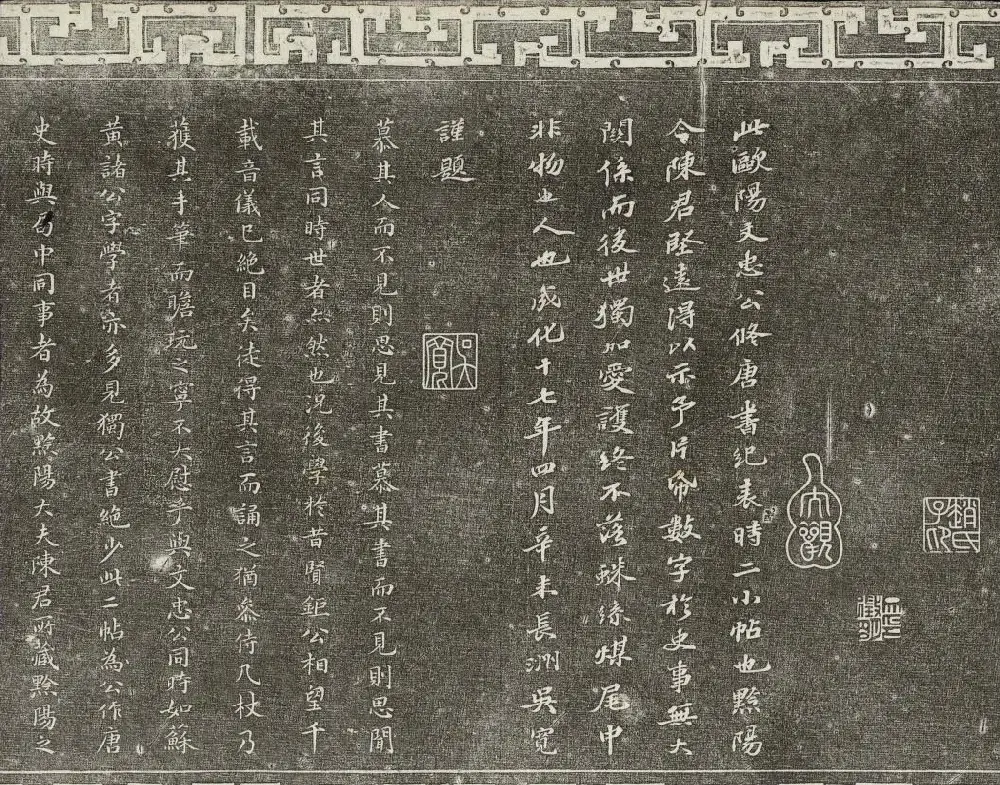 此歐陽文忠公脩唐書紀表時二小帖也黟陽
令陳君堅遠得以示予片紙數字於史事無大
關係而後世獨加愛護終不落蛛絲煤尾中
非物也人也成化十七年四月辛未長洲吳寬
謹題
慕其人而不見則思見其書慕其書而不見則思聞
其言同時世者亦然也況後學於昔賢鉅公相望千
載音儀已絶目矣徒得其言而誦之猶參侍几杖乃
獲其手筆而瞻玩之寧不大慰乎與文忠公同時如蘇
黄諸公字學者亦多見獨公書絶少此二帖為公作唐
史時與局中同事者為故黟陽大夫陳君所藏黟陽之